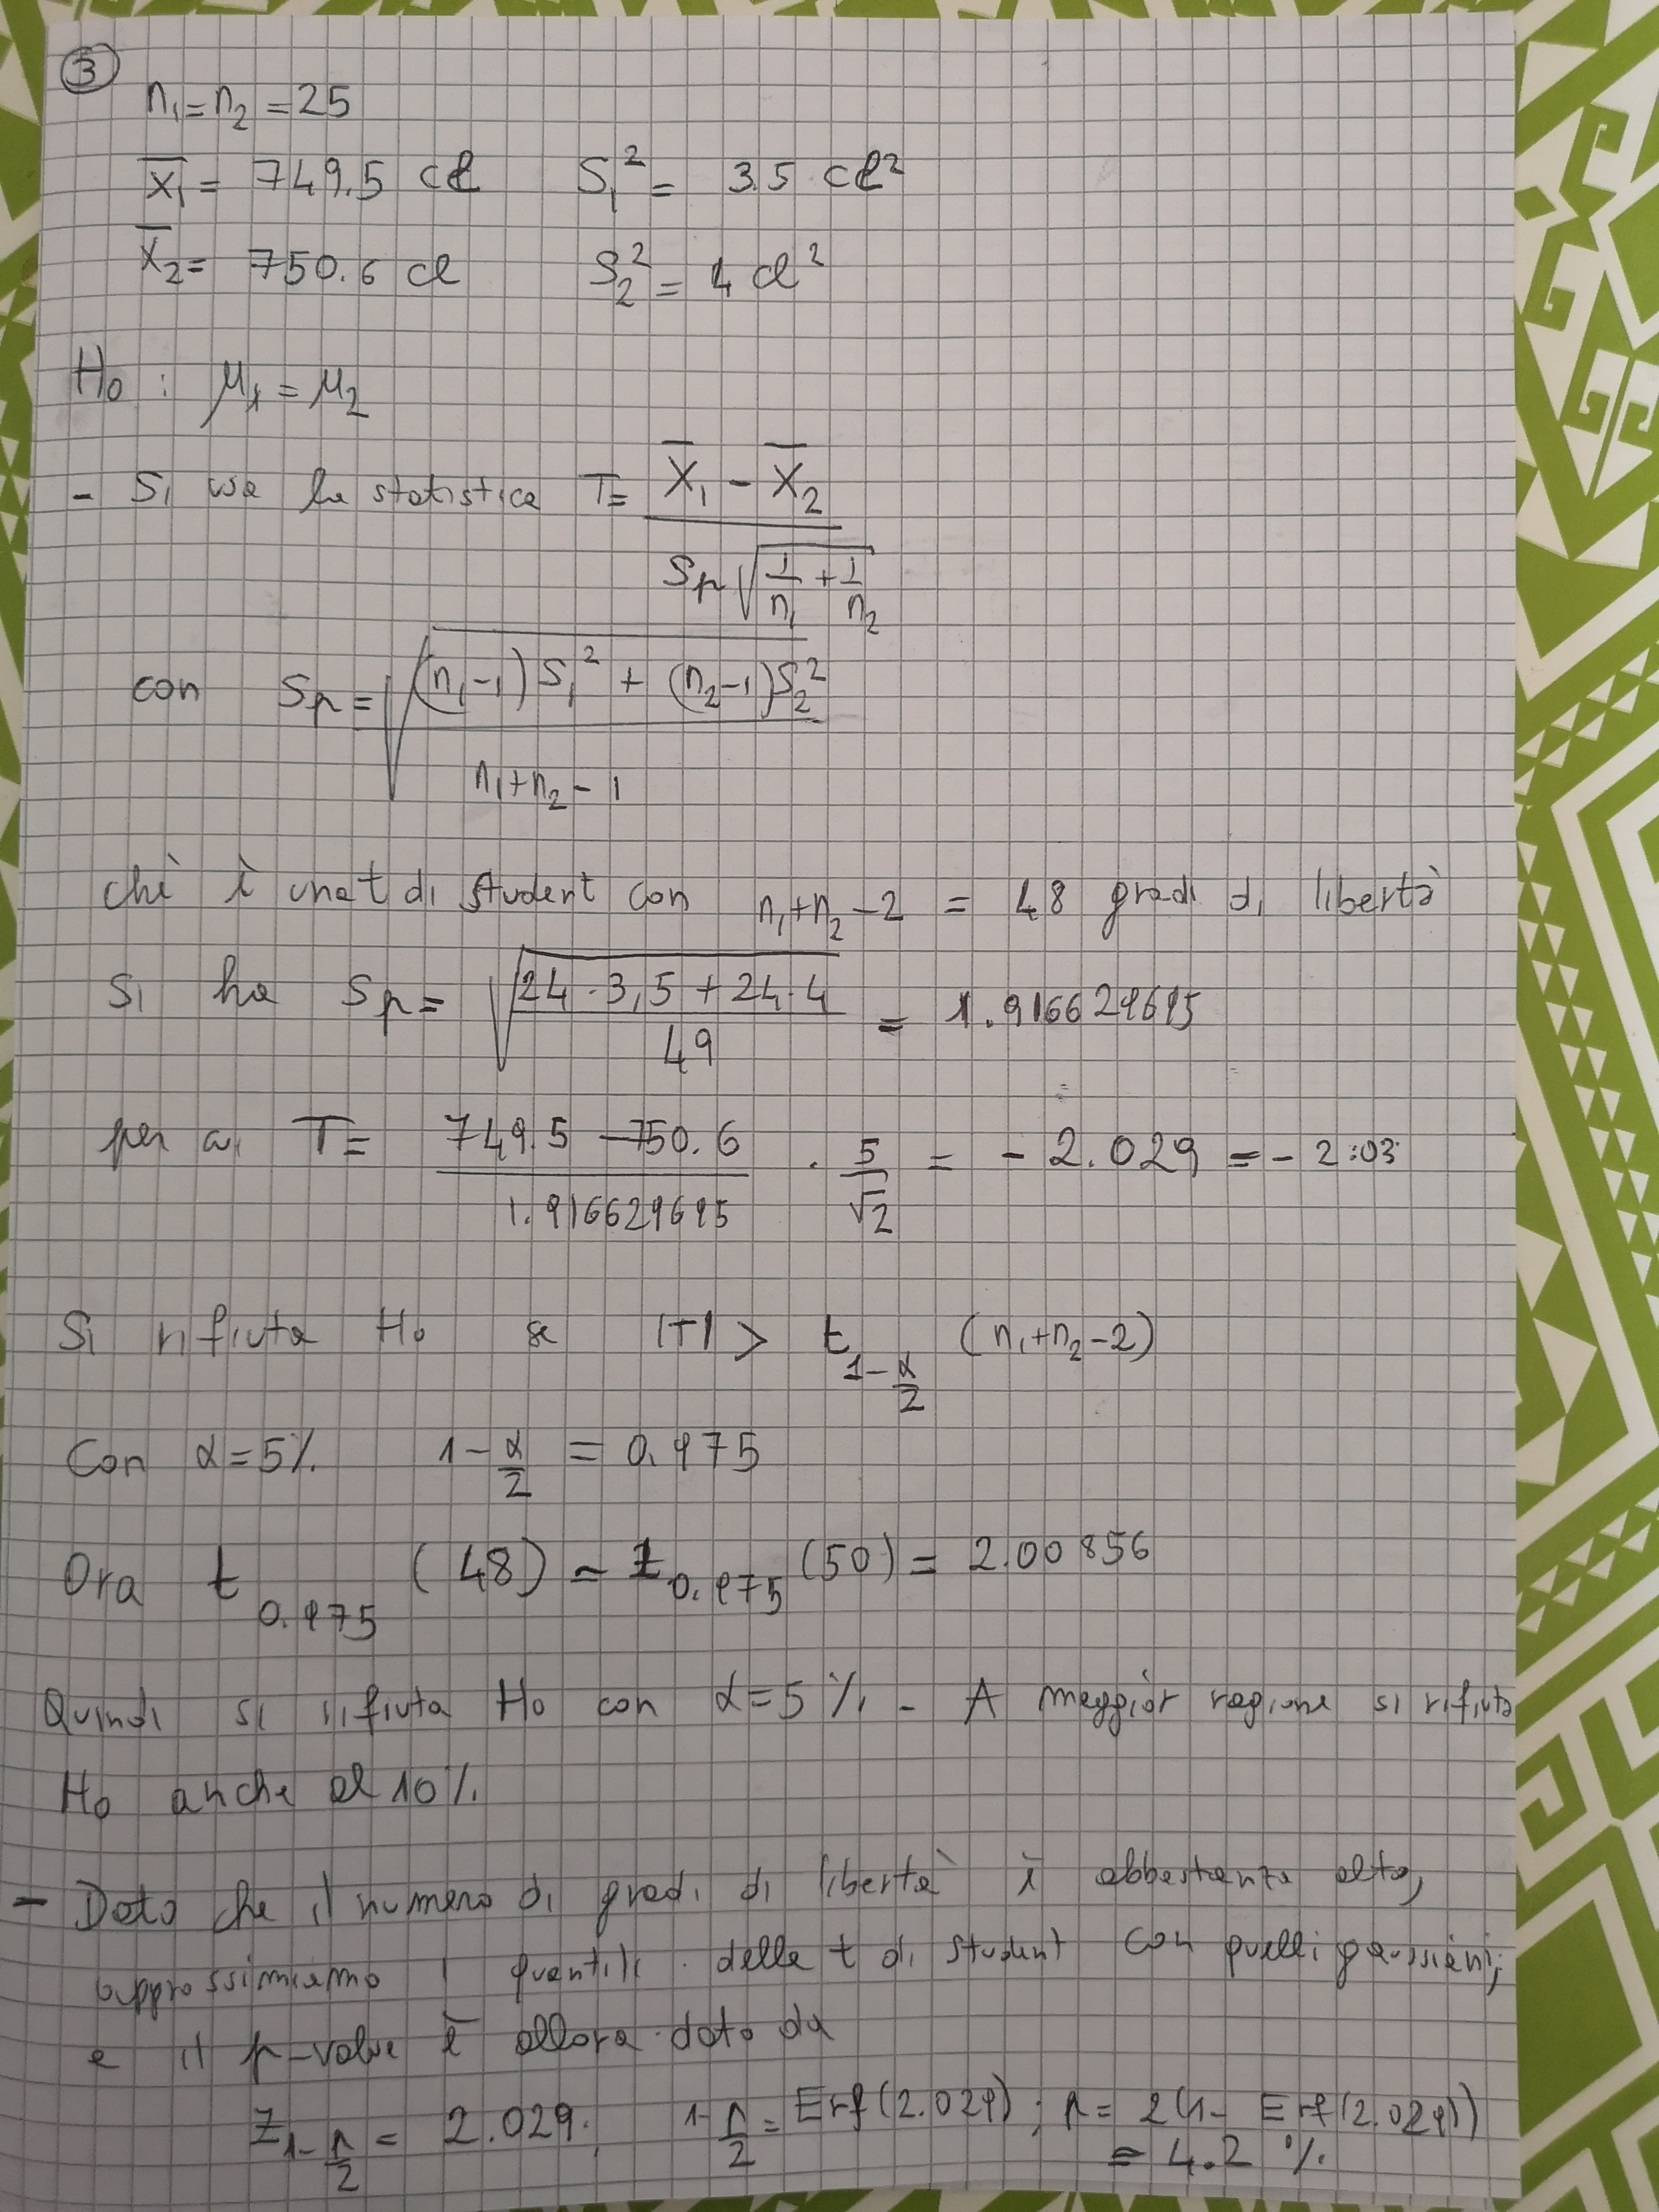 3
n₁ = n₂ = 25
x̄₁ = 749.5 cl S₁² = 3.5 cl²
x̄₂ = 750.6 cl S₂² = 4 cl²
H₀ : μ₁ = μ₂
- Si usa la statistica T = (X̄₁ - X̄₂) / (Sp √(1/n₁ + 1/n₂))
con Sp = √(((n₁-1)S₁² + (n₂-1)S₂²) / (n₁+n₂-1))
chè è una t di student con n₁+n₂-2 = 48 gradi di libertà
Si ha Sp = √((24·3,5 + 24·4) / 49) = 1.916629695
per cui T = (749.5 - 750.6) / 1.916629695 · 5/√2 = - 2.029 = - 2.03
Si rifiuta H₀ se |T| > t_{1-α/2} (n₁+n₂-2)
Con α = 5% 1 - α/2 = 0.975
Ora t_{0.975} (48) ≃ t_{0.975} (50) = 2.00856
Quindi si rifiuta H₀ con α = 5% - A maggior ragione si rifiuta
H₀ anche al 10%
- Dato che il numero di gradi di libertà è abbastanza alto,
approssimiamo i quantili delle t di student con quelli gaussiani;
e il p-value è allora dato da
z_{1-p/2} = 2.029; 1-p/2 = Erf(2.029); p = 2(1- Erf(2.029))
= 4.2 %